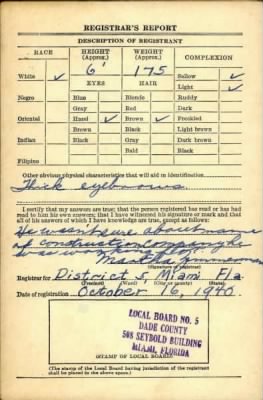 REGISTRAR'S REPORT
DESCRIPTION OF REGISTRANT
RACE HEIGHT (Approx.) WEIGHT (Approx.) COMPLEXION
6' 175
White ✓ EYES HAIR Sallow ✓
Light ✓
Negro Blue Blonde Ruddy
Gray Red Dark
Oriental Hazel ✓ Brown ✓ Freckled
Brown Black Light brown
Indian Black Gray Dark brown
Bald Black
Filipino
Other obvious physical characteristics that will aid in identification
Thick eyebrows.
I certify that my answers are true; that the person registered has read or has had
read to him his own answers; that I have witnessed his signature or mark and that
all of his answers of which I have knowledge are true, except as follows:
He wasn't sure about name
of construction company he
was
Martha Zimmerman
(Signature of registrar)
Registrar for District 5, Miami Fla.
(Precinct) (Ward) (City or county) (State)
Date of registration October 16, 1940
LOCAL BOARD NO. 5
DADE COUNTY
508 SEYBOLD BUILDING
MIAMI, FLORIDA
(STAMP OF LOCAL BOARD)
(The stamp of the Local Board having jurisdiction of the registrant
shall be placed in the above space.)